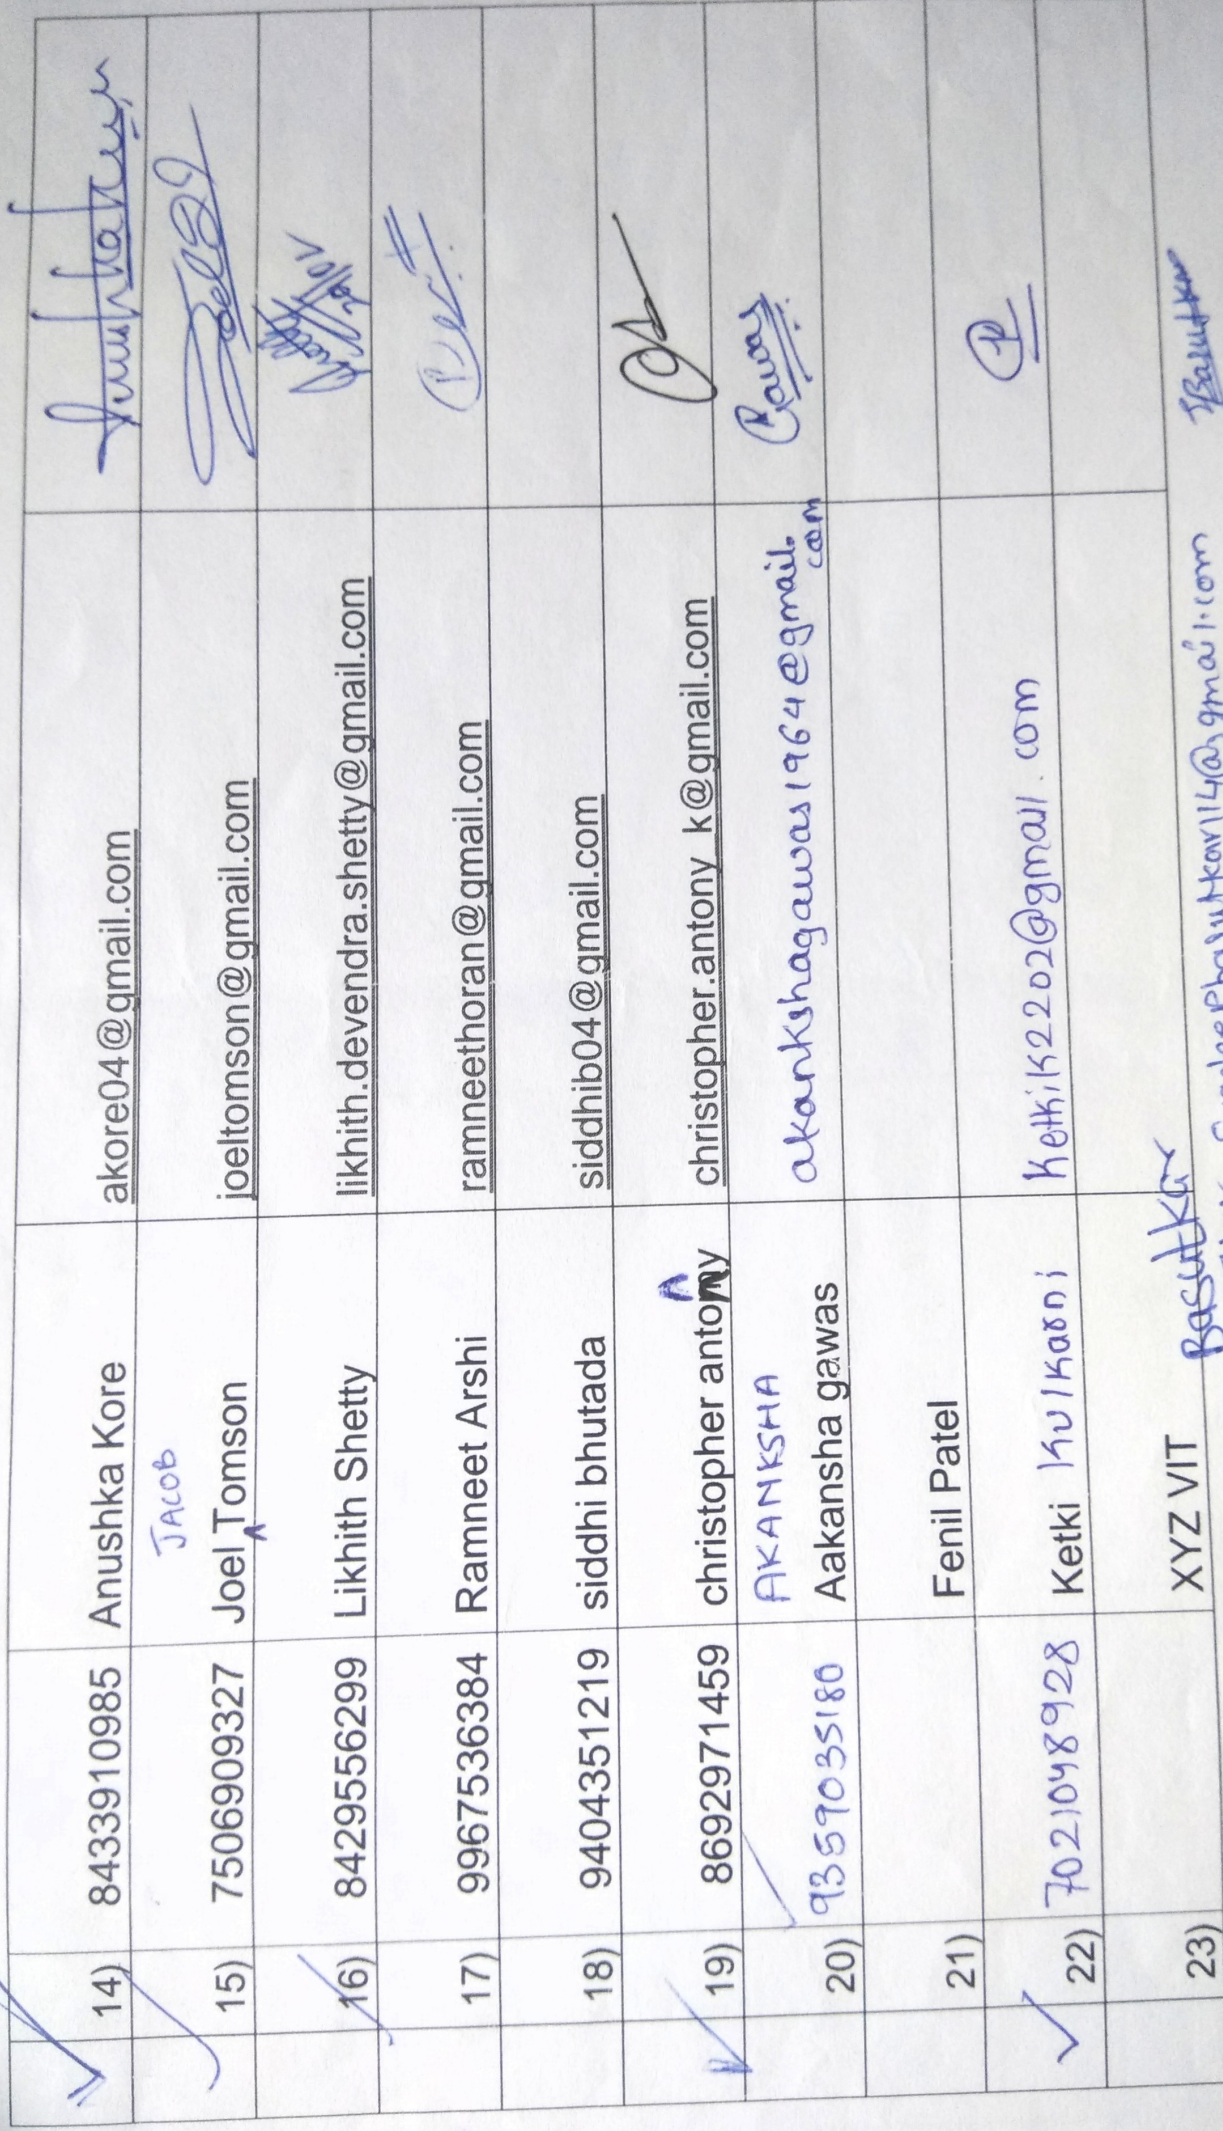 14) 8433910985 Anushka Kore akore04@gmail.com
JACOB
15) 7506909327 Joel ^ Tomson joeltomson@gmail.com
16) 8429556299 Likhith Shetty likhith.devendra.shetty@gmail.com
17) 9967536384 Ramneet Arshi ramneethoran@gmail.com
18) 9404351219 siddhi bhutada siddhib04@gmail.com
19) 8692971459 christopher antony christopher.antony_k@gmail.com
AKANKSHA
20) 9359035180 Aakansha gawas akankshagawas1964@gmail.com Gawas
21) Fenil Patel
22) 7021048928 Ketki Kulkarni ketkik2202@gmail.com
23) XYZ VIT Basutkar